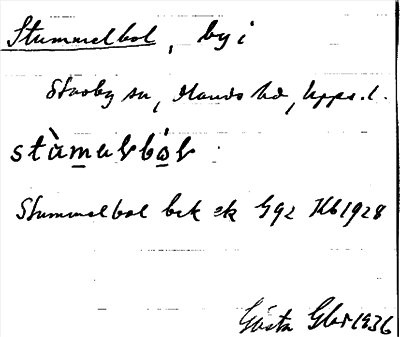 Stummelbol, by i
Skoby sn, Olands hd, Upps. l.
stùməlbόl
Stummelbol bek ek G92 Hb1928
Gösta 1936